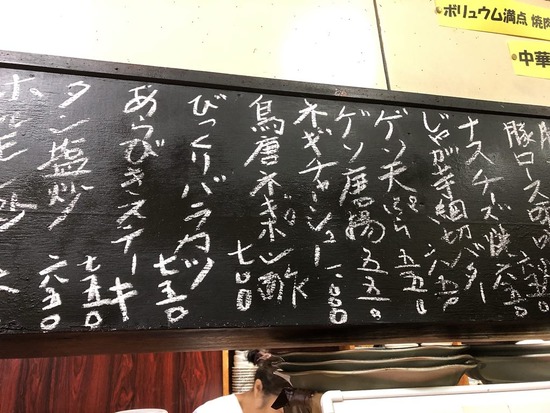 ボリュウム満点 焼肉
中華
豚ロース
六五〇
ナスチーズ焼
六五〇
じゃが芋細切バター
ゲソ天
五五〇
ゲソ唐揚
五五〇
ネギチャーシュー
一、〇〇〇
鳥唐ネギポン酢
七〇〇
びっくりバラカツ
七五〇
あらびきステーキ
七五〇
タン塩炒
六五〇